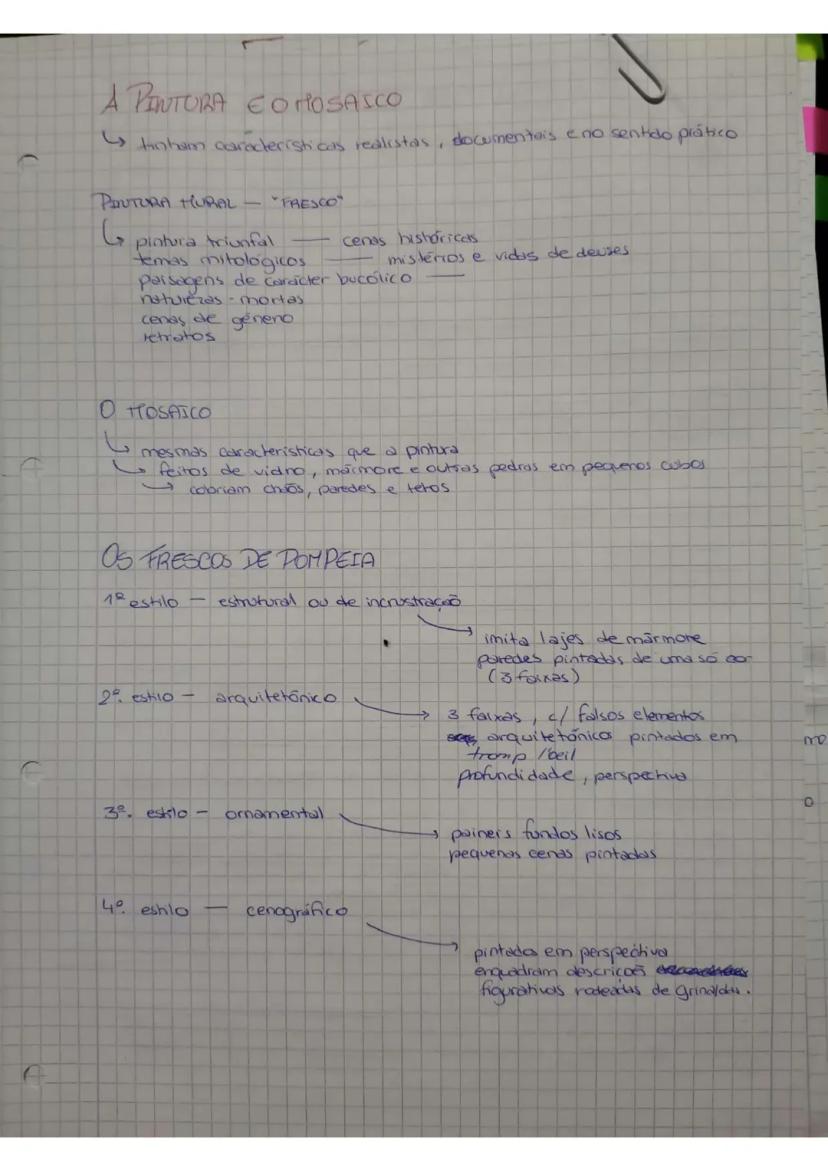 A PINTURA E O MOSAICO
↳ tinham características realistas, documentais e no sentido prático
PINTURA MURAL — "FRESCO"
↳ pintura triunfal — cenas históricas
temas mitológicos — mistérios e vidas de deuses
paisagens de carácter bucólico —
naturezas-mortas
cenas de género
retratos
O MOSAICO
↳ mesmas características que a pintura
↳ feitos de vidro, mármore e outras pedras em pequenos cubos
→ cobriam chãos, paredes e tetos
OS FRESCOS DE POMPEIA
1º estilo — estrutural ou de incrustração
imita lajes de mármore
paredes pintadas de uma só cor
(3 faixas)
2º. estilo — arquitetónico
3 faixas, c/ falsos elementos
arquitetónicos pintados em
tromp l'oeil
profundidade, perspectiva
3º. estilo — ornamental
paineis fundos lisos
pequenas cenas pintadas
4º. estilo — cenográfico
pintada em perspectiva
enquadram descriçoes
figurativas rodeadas de grinaldas.
mo
o